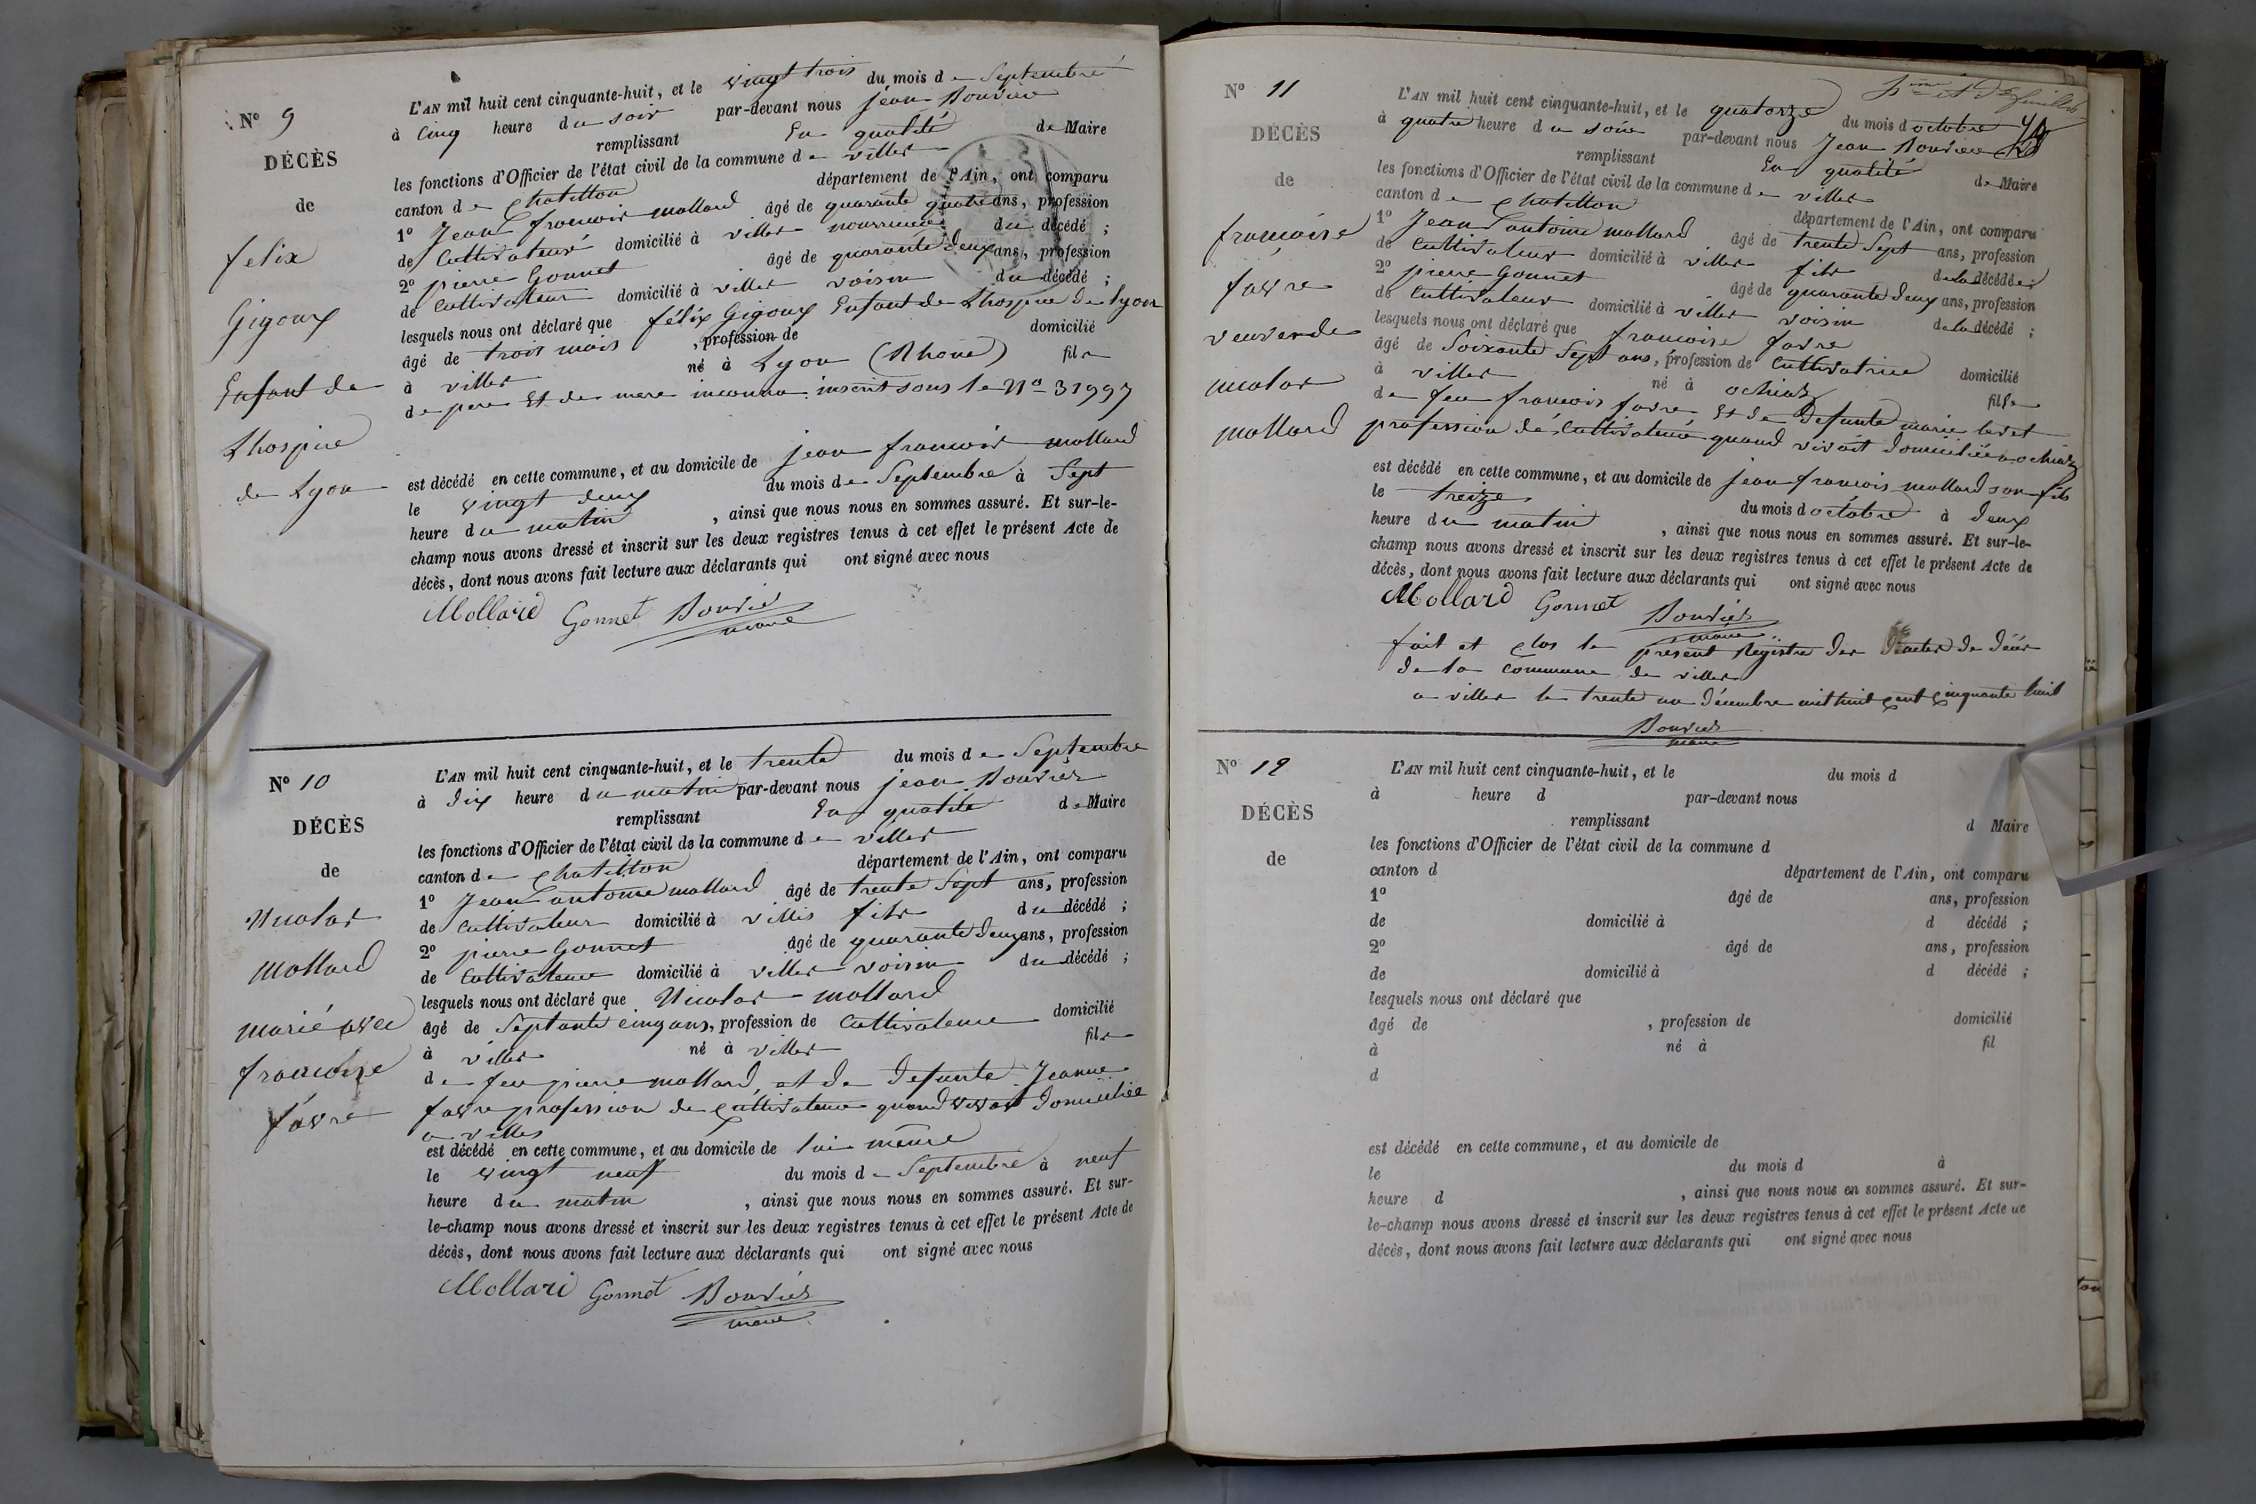 N° 9
DÉCÈS
de
felix
Gigoux
Enfant de
Lhospice
de Lyon
L'AN mil huit cent cinquante-huit, et le vingt trois du mois de Septembre
à Cinq heure du soir par-devant nous jean Bouvier
remplissant En qualité de Maire
les fonctions d'Officier de l'état civil de la commune de villes
canton de chatillon département de l'Ain, ont comparu
1° Jean francois mollard âgé de quarante quatre ans, profession
de Cultivateur domicilié à villes nourricier du décédé ;
2° pierre Gonnet âgé de quarante deux ans, profession
de Cultivateur domicilié à villes voisin du décédé ;
lesquels nous ont déclaré que félix Gigoux Enfant de Lhospice de lyon
âgé de trois mois , profession de domicilié
à villes né à Lyon (Rhone) fils
de pere Et de mere inconnu inscrit sous le N° 31997
est décédé en cette commune, et au domicile de jean francois mollard
le vingt deux du mois de Septembre à Sept
heure du matin , ainsi que nous nous en sommes assuré. Et sur-le-
champ nous avons dressé et inscrit sur les deux registres tenus à cet effet le présent Acte de
décès, dont nous avons fait lecture aux déclarants qui ont signé avec nous
Mollard Gonnet Bouvier
maire
N° 10
DÉCÈS
de
Nicolas
Mollard
marié avec
francoise
favre
L'AN mil huit cent cinquante-huit, et le trente du mois de Septembre
à dix heure du matin par-devant nous jean Bouvier
remplissant En qualité de Maire
les fonctions d'Officier de l'état civil de la commune de villes
canton de chatillon département de l'Ain, ont comparu
1° Jean antoine mollard âgé de trente Sept ans, profession
de Cultivateur domicilié à villes fils du décédé ;
2° pierre Gonnet âgé de quarante deux ans, profession
de Cultivateur domicilié à villes voisin du décédé ;
lesquels nous ont déclaré que Nicolas mollard
âgé de Septante cinq ans, profession de Cultivateur domicilié
à villes né à villes fils
de feu pierre mollard, et de defunte Jeanne
favre profession de Cultivateur quand vivoit domiciliée
a villes
est décédé en cette commune, et au domicile de lui même
le vingt neuf du mois de Septembre à neuf
heure du matin , ainsi que nous nous en sommes assuré. Et sur-
le-champ nous avons dressé et inscrit sur les deux registres tenus à cet effet le présent Acte de
décès, dont nous avons fait lecture aux déclarants qui ont signé avec nous
Mollard Gonnet Bouvier
maire
N° 11
DÉCÈS
de
francoise
favre
veuve de
nicolas
mollard
L'AN mil huit cent cinquante-huit, et le quatorze du mois d octobre
à quatre heure du soir par-devant nous Jean Bouvier
remplissant En qualité de Maire
les fonctions d'Officier de l'état civil de la commune de villes
canton de chatillon département de l'Ain, ont comparu
1° Jean antoine mollard âgé de trente Sept ans, profession
de Cultivateur domicilié à villes fils de la décédée ;
2° pierre Gonnet âgé de quarante deux ans, profession
de Cultivateur domicilié à villes voisin de la décédé ;
lesquels nous ont déclaré que francoise favre
âgé de Soixante Sept ans, profession de Cultivatrice domicilié
à villes né à ochiaz fille
de feu francois favre Et de Defunte marie
profession de Cultivateur quand vivoit domiciliée a ochiaz
est décédé en cette commune, et au domicile de jean francois mollard son fils
le treize du mois d octobre à deux
heure du matin , ainsi que nous nous en sommes assuré. Et sur-le-
champ nous avons dressé et inscrit sur les deux registres tenus à cet effet le présent Acte de
décès, dont nous avons fait lecture aux déclarants qui ont signé avec nous
Mollard Gonnet Bouvier
maire
fait et clos le present Registre des actes de décès
de la commune de villes
a villes le trente un décembre mil huit cent cinquante huit
Bouvier
maire
N° 12
DÉCÈS
de
L'AN mil huit cent cinquante-huit, et le du mois d
à heure d par-devant nous
remplissant d Maire
les fonctions d'Officier de l'état civil de la commune d
canton d département de l'Ain, ont comparu
1° âgé de ans, profession
de domicilié à d décédé ;
2° âgé de ans, profession
de domicilié à d décédé ;
lesquels nous ont déclaré que
âgé de , profession de domicilié
à né à fil
d
est décédé en cette commune, et au domicile de
le du mois d à
heure d , ainsi que nous nous en sommes assuré. Et sur-
le-champ nous avons dressé et inscrit sur les deux registres tenus à cet effet le présent Acte de
décès, dont nous avons fait lecture aux déclarants qui ont signé avec nous